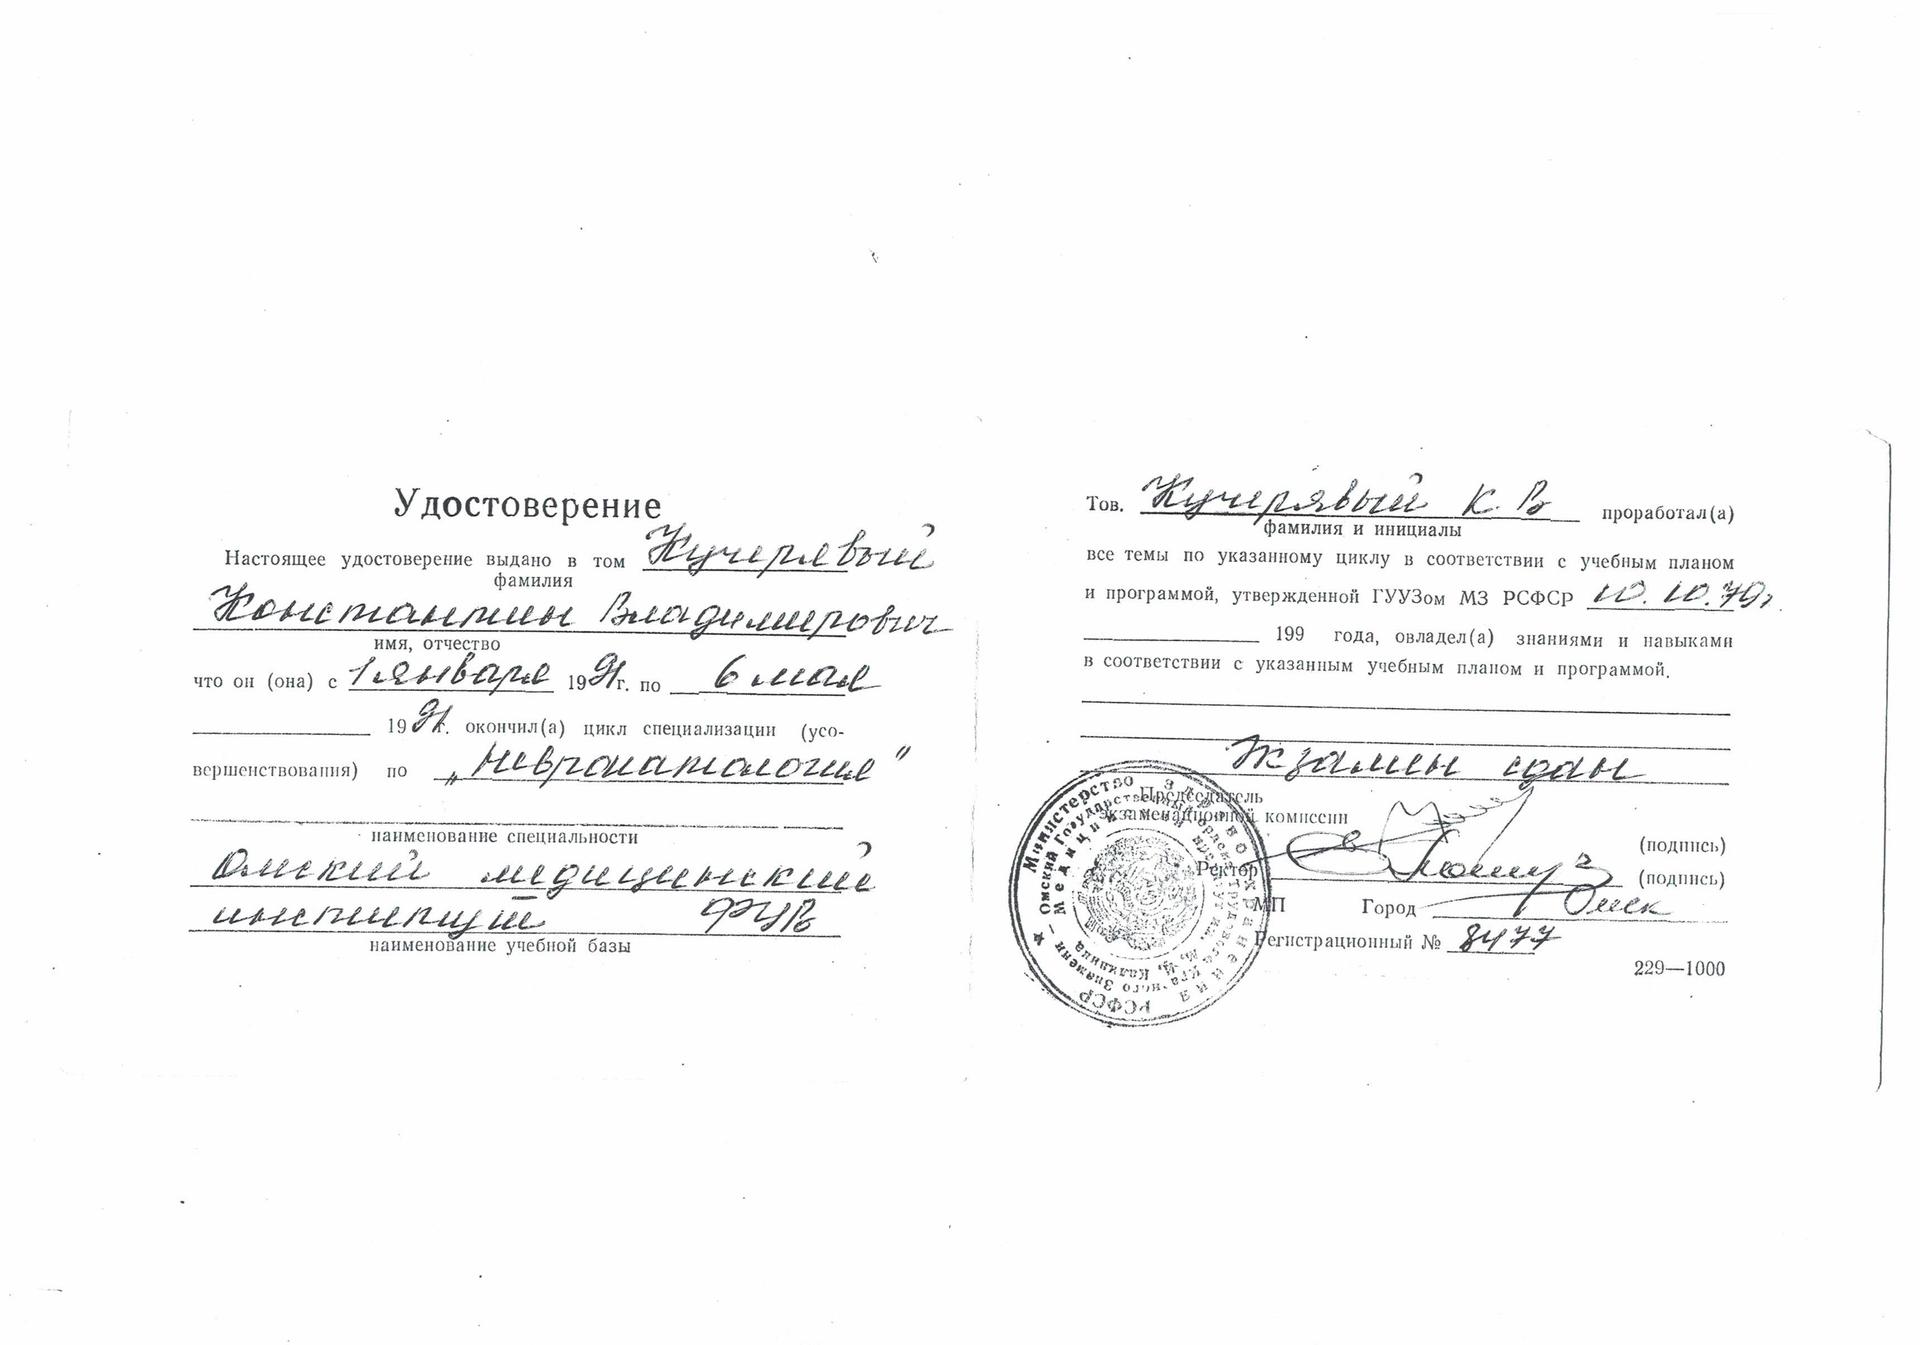 Удостоверение
Настоящее удостоверение выдано в том Кучерявый
фамилия
Константин Владимирович
имя, отчество
что он (она) с 1 января 1991г. по 6 мая
1991г. окончил(а) цикл специализации (усо-
вершенствования) по „Невропатология"
наименование специальности
Омский медицинский
институт ФУВ
наименование учебной базы
Тов. Кучерявый К. В проработал(а)
фамилия и инициалы
все темы по указанному циклу в соответствии с учебным планом
и программой, утвержденной ГУУЗом МЗ РСФСР 10.10.79г
199 года, овладел(а) знаниями и навыками
в соответствии с указанным учебным планом и программой.
Экзамен сдан
Председатель
экзаменационной комиссии
(подпись)
Ректор (подпись)
МП Город Омск
Регистрационный № 8477
229—1000
Министерство здравоохранения РСФСР
Омский Государственный ордена Трудового Красного Знамени
Медицинский институт им. М. И. Калинина